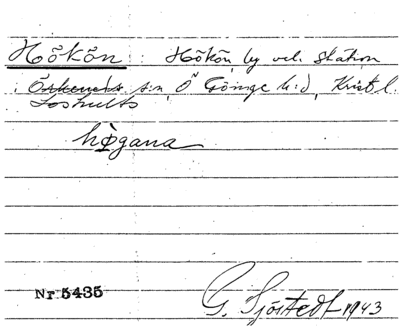 Hökön : Hökön, by vel. station
i Örkeneds s:n, Ö Göinge h:d, Krist l.
Loshults
hògana
Nr 5435
G. Sjöstedt 1943